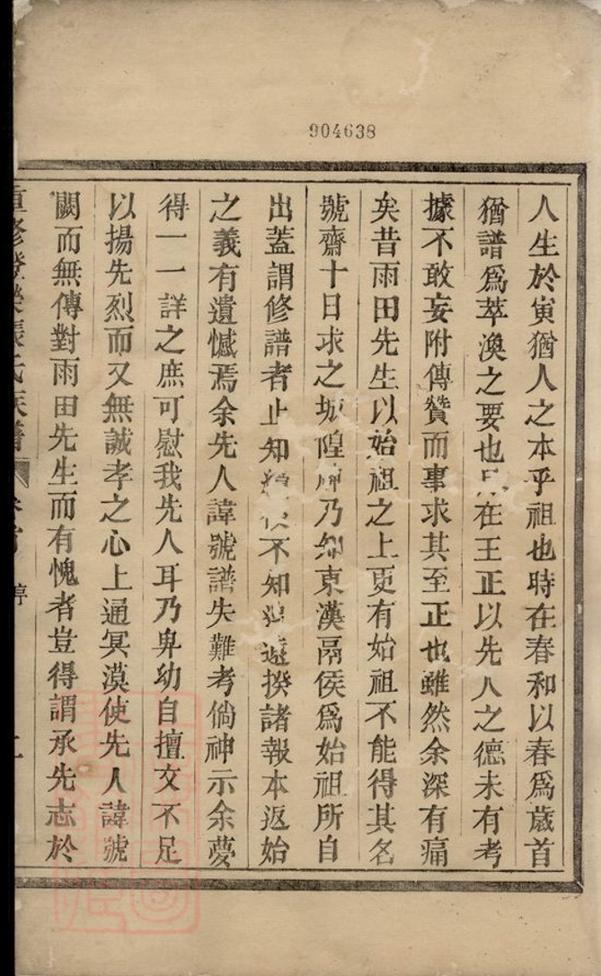 904638
人生於寅猶人之本乎祖也時在春和以春爲歲首
猶譜爲萃渙之要也月在王正以先人之德未有考
據不敢妄附傳贊而事求其至正也雖然余深有痛
矣昔雨田先生以始祖之上更有始祖不能得其名
號齋十日求之城隍神乃知東漢鬲侯爲始祖所自
出蓋謂修譜者止知不知遠揆諸報本返始
之義有遺憾焉余先人諱號譜失難考倘神示余夢
得一一詳之庶可慰我先人耳乃卑幼自擅文不足
以揚先烈而又無誠孝之心上通冥漠使先人諱號
闕而無傳對雨田先生而有愧者豈得謂承先志於
重修登榮張氏族譜 卷首 序 二